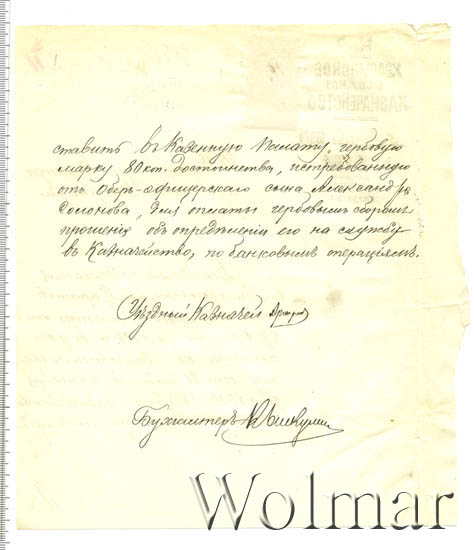 ставить въ Казенную Палату, гербовую
марку 80 кп. достоинства, истребованную
отъ Оберъ-офицерскаго сына Александра
Соломова, для оплаты гербовымъ сборомъ
прошенія объ опредѣленіи его на службу
въ Казначейство, по банковымъ операціямъ.
Уѣздный Казначей
Бухгалтеръ
Wolmar